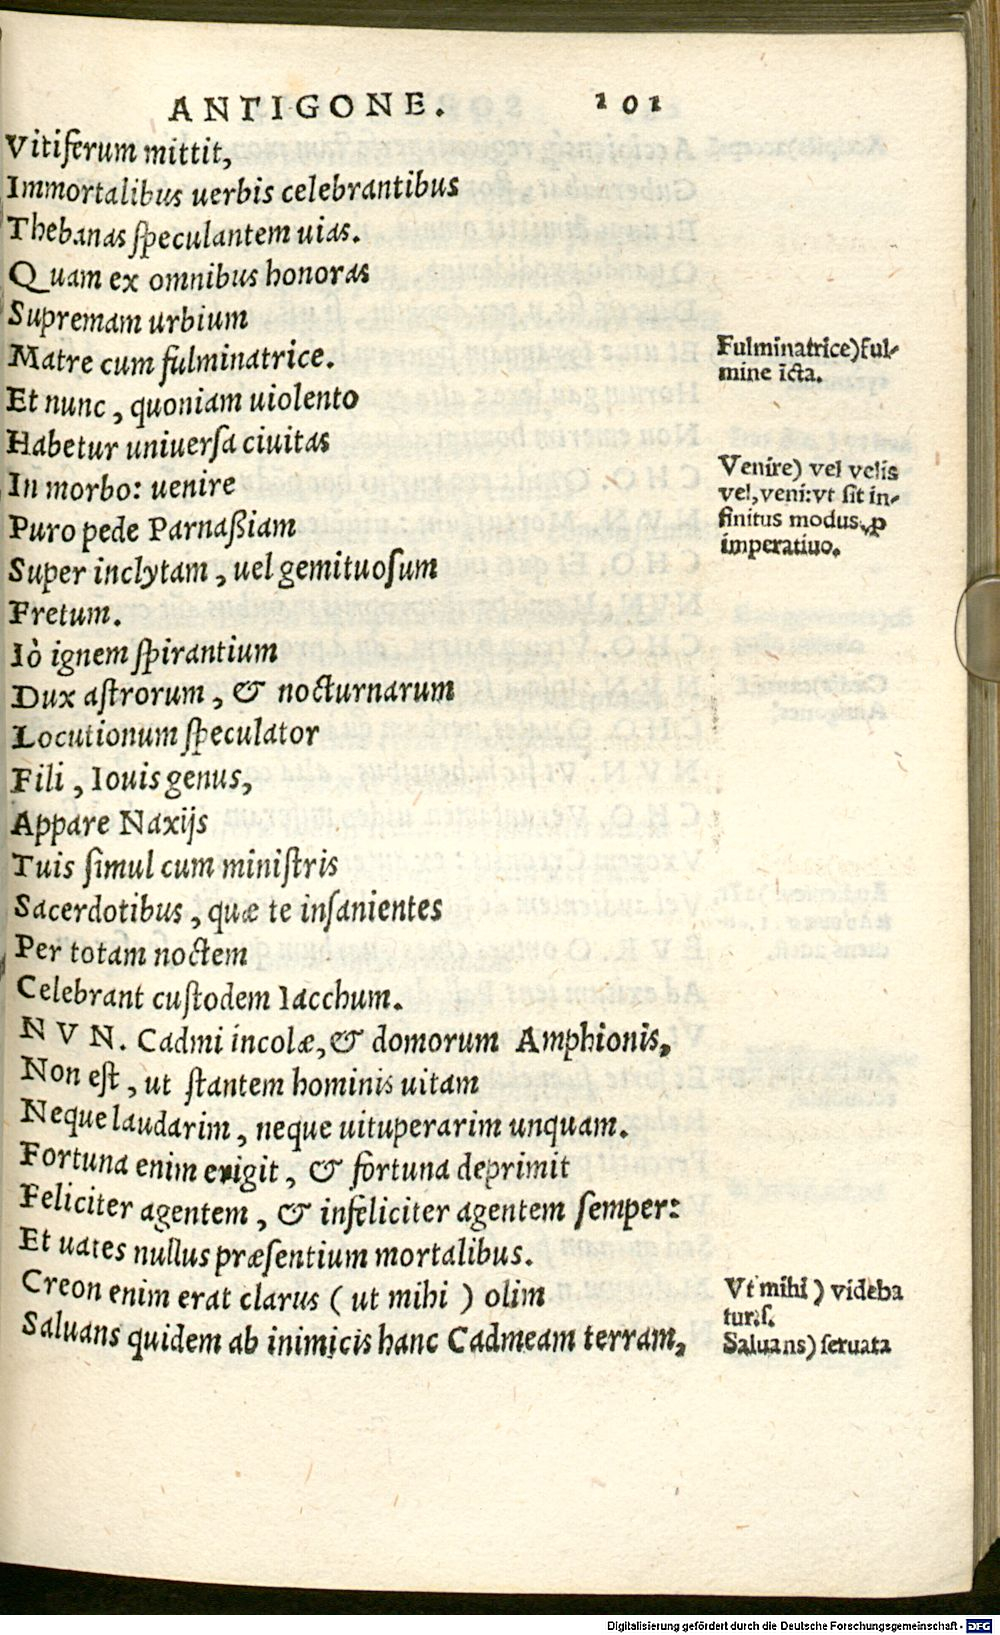 ANTIGONE. 101
Vitiferum mittit,
Immortalibus uerbis celebrantibus
Thebanas speculantem uias.
Quam ex omnibus honoras
Supremam urbium
Matre cum fulminatrice.
Fulminatrice) ful-
mine icta.
Et nunc, quoniam uiolento
Habetur uniuersa ciuitas
In morbo: uenire
Venire) vel velis
vel, veni: vt sit in-
finitus modus, ꝓ
imperatiuo.
Puro pede Parnaßiam
Super inclytam, uel gemituosum
Fretum.
Iò ignem spirantium
Dux astrorum, & nocturnarum
Locutionum speculator
Fili, Iouis genus,
Appare Naxijs
Tuis simul cum ministris
Sacerdotibus, quæ te insanientes
Per totam noctem
Celebrant custodem Iacchum.
NVN. Cadmi incolæ, & domorum Amphionis,
Non est, ut stantem hominis uitam
Neque laudarim, neque uituperarim unquam.
Fortuna enim erigit, & fortuna deprimit
Feliciter agentem, & infeliciter agentem semper:
Et uates nullus præsentium mortalibus.
Creon enim erat clarus (ut mihi) olim
Saluans quidem ab inimicis hanc Cadmeam terram,
Vt mihi) videba
tur.s.
Saluans) seruata
Digitalisierung gefördert durch die Deutsche Forschungsgemeinschaft - DFG